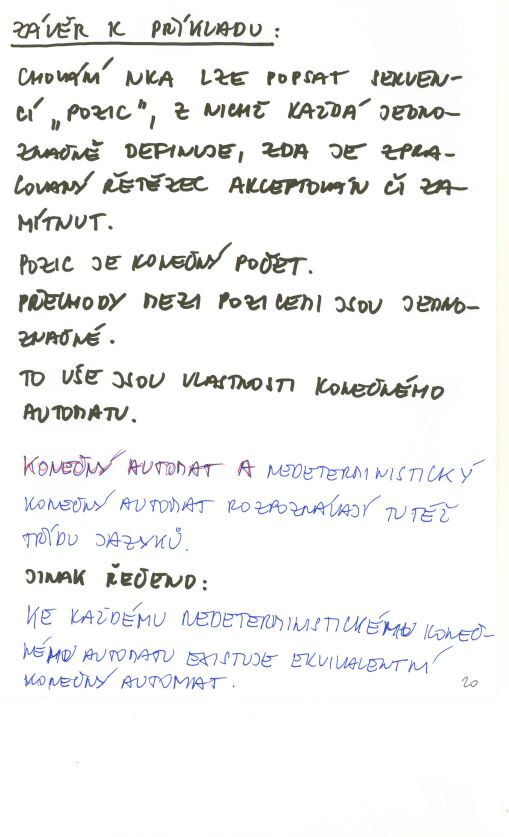 ZÁVĚR K PŘÍKLADU:
CHOVÁNÍ NKA LZE POPSAT SEKVEN-
CÍ „POZIC“, Z NICHŽ KAŽDÁ JEDNO-
ZNAČNĚ DEFINUJE, ZDA JE ZPRA-
COVANÝ ŘETĚZEC AKCEPTOVÁN ČI ZA-
MÍTNUT.
POZIC JE KONEČNÝ POČET.
PŘECHODY MEZI POZICEMI JSOU JEDNO-
ZNAČNÉ.
TO VŠE JSOU VLASTNOSTI KONEČNÉHO
AUTOMATU.
KONEČNÝ AUTOMAT A NEDETERMINISTICKÝ
KONEČNÝ AUTOMAT ROZPOZNÁVAJÍ TUTÉŽ
TŘÍDU JAZYKŮ.
JINAK ŘEČENO:
KE KAŽDÉMU NEDETERMINISTICKÉMU KONEČ-
NÉMU AUTOMATU EXISTUJE EKVIVALENTNÍ
KONEČNÝ AUTOMAT.
20